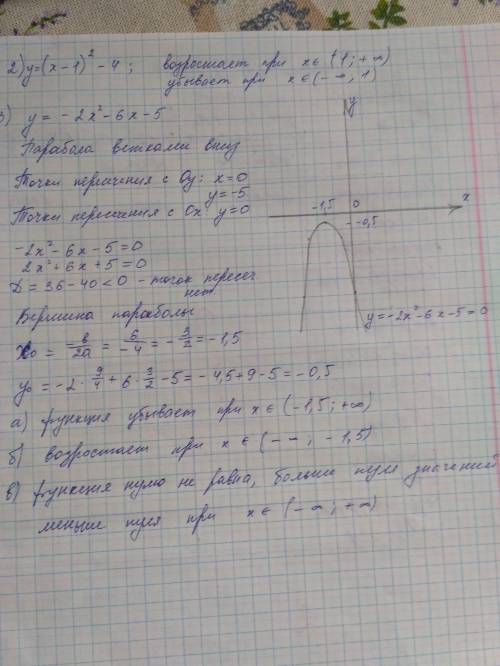 2) y=(x-1)² - 4 ; возростает при x∈(1;+∞)
убывает при x∈(-∞, 1)
3) y = -2x²-6x-5
Парабола ветками вниз
Точки пересечения с Oy: x=0
y=-5
Точки пересечения с Ox: y=0
-2x²-6x-5=0
2x²+6x+5=0
D = 36-40<0 - точек пересеч
нет
Вершина параболы
x₀ = -b/2a = 6/-4 = -3/2 = -1,5
y₀ = -2·9/4 + 6·3/2 - 5 = -4,5+9-5 = -0,5
а) функция убывает при x∈(-1,5;+∞)
б) возростает при x∈(-∞; -1,5)
в) функция нулю не равна, больше нуля значений
меньше нуля при x∈(-∞;+∞)
y
x
-1,5 0
-0,5
y=-2x²-6x-5=0